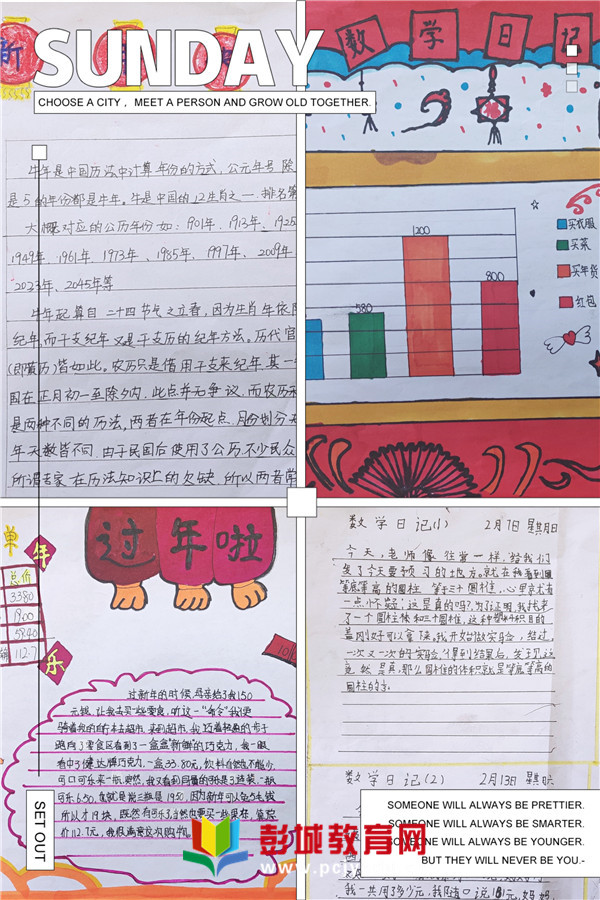 SUNDAY
CHOOSE A CITY， MEET A PERSON AND GROW OLD TOGETHER.
牛年是中国历法中计算年份的方式，公元年号除
是5的年份都是牛年。牛是中国的12生肖之一 排名第
大概对应的公历年份如：901年、913年、1925
1949年、1961年、1973年、1985年、1997年、2009年
2023年、2045年等
牛年起算自二十四节气之立春，因为生肖牛依附
纪年，而干支纪年又是干支历的纪年方法。历代官
(即黄历)皆如此。农历只是借用干支来纪年，其一
围在正月初一至除夕内，此点并无争议，而农历和
是两种不同的历法，两者在年份起点、月份划分
年天数皆不同，由于民国后使用了公历不少民众
所谓专家在历法知识上的欠缺，所以两者常
数学日记
1200
800
580
买衣服
买菜
买年货
红包
单
年
乐
总价
3380
1900
5840
112.7
过年啦
过新年的时候，妈妈给了我150
元钱，让我去买一些零食，听这一"命令"我便
骑着我的自行车去超市，来到超市，我迈着轻盈的步子
跑向了零食区看到了一盒盒新潮的巧克力，我一眼
看中了德芙牌巧克力，一盒33.80元，饮料自然也不能少，
可口可乐来一瓶，突然，我又看到
可乐6.50，
价112.7元，我很满意这次购物。
数学日记(1) 2月7日 星期日
今天，老师像往常一样，给我们
发了今天要预习的地方，就在我看到圆
等底等高的圆柱 等于三个圆锥，心里就有
一点怀疑：这是真的吗？为了证明，我找来
了一个圆柱体和三个圆锥，这种塑料积目的
盖刚好可以拿下来，我开始做实验，经过
一次又一次的实验，得到结果后，发现这
竟然是真，那么圆锥的体积就是等底等高的
圆柱的
数学日记(2) 2月13日 星期六
我一共用了多少元，我随口说181元，妈妈，
SET OUT
SOMEONE WILL ALWAYS BE PRETTIER.
SOMEONE WILL ALWAYS BE SMARTER.
SOMEONE WILL ALWAYS BE YOUNGER.
BUT THEY WILL NEVER BE YOU.-
彭城教育网